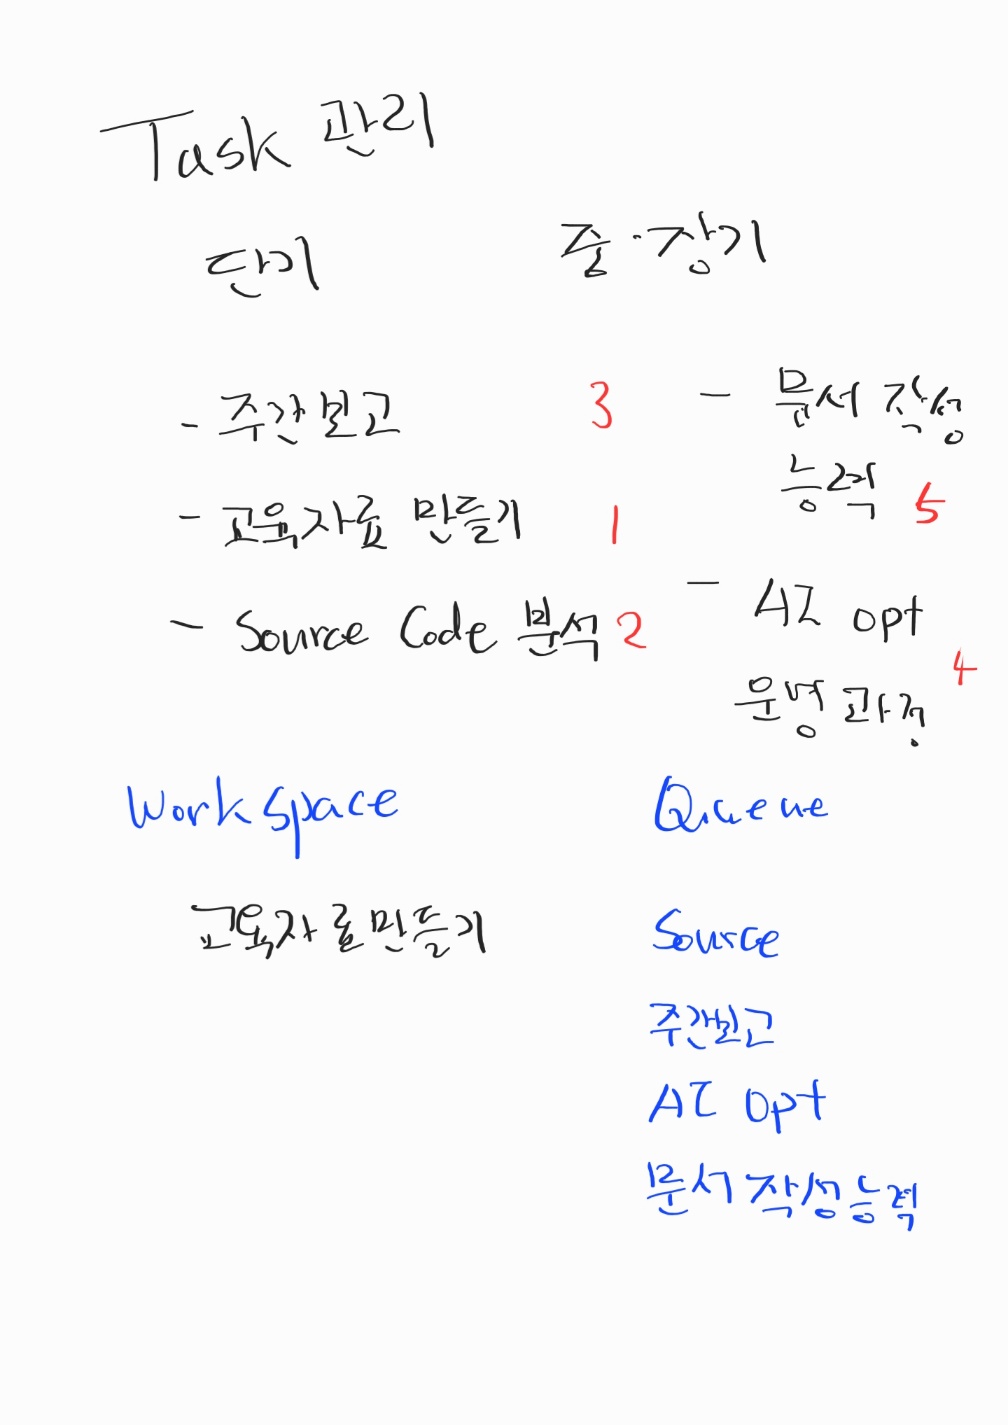 Task 관리
단기
중·장기
- 주간보고 3
- 교육자료 만들기 1
- Source Code 분석 2
- 문서 작성
능력 5
- AI opt
운영 과정 4
Workspace
교육자료만들기
Queue
Source
주간보고
AI opt
문서작성능력